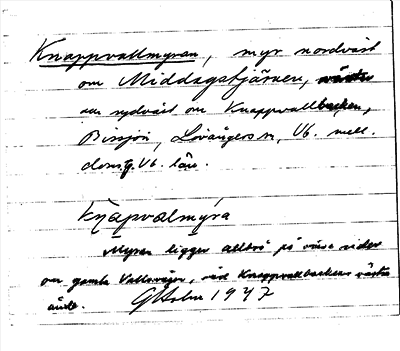 Knappvallmyran, myr nordväst
om Middagstjärnen,
om sydväst om Knappvallbacken,
Bissjön, Lövångers sn, Vb. mell.
doms. Vb. län.
knäpvalmyra
Myran ligger alltså på västra sidan
om gamla Vallvägen, vid Knappvallbackens västra
ände. G Holm 1947